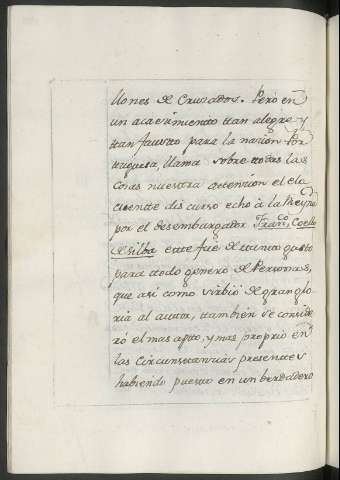 llones de Cruzados. Pero en
un acaecimiento ttan alegre y
ttan fausto para la nasion Por
ttuguesa, llama sobre ttodas las
Cosas nuestra attension el elo
cuente discurso echo â la Reyna
por el desembargador Franco. Coello
de silba este fue de ttanto gusto
para ttodo genero de Personas,
que asi como sirbió de gran glo
ria al autor, ttambien se conside
ró el mas apto, y mas proprio en
las Circunsttansias presenttes
habiendo puesto en un berdadero